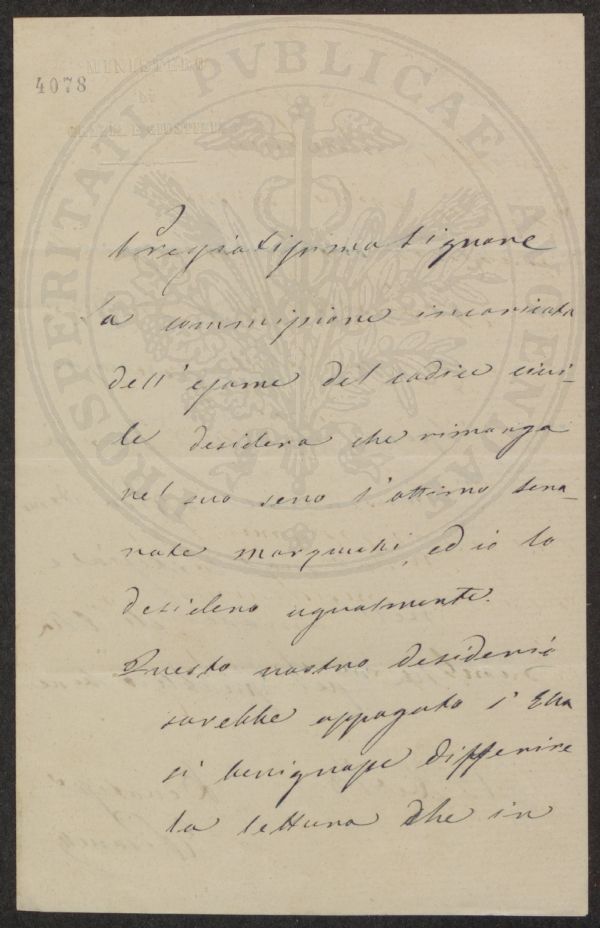 MINISTERO
DI
GRAZIA E GIUSTIZIA
4078
PROSPERITATI PVBLICAE AVGENDAE
Pregiatissimo Signore
La commissione incaricata
dell'esame del codice civi-
le desidera che rimanga
nel suo seno l'ottimo Sena-
tore Marzucchi, ed io lo
desidero ugualmente.
Questo nostro desiderio
sarebbe appagato s'Ella
si benignasse differire
la lettura che in